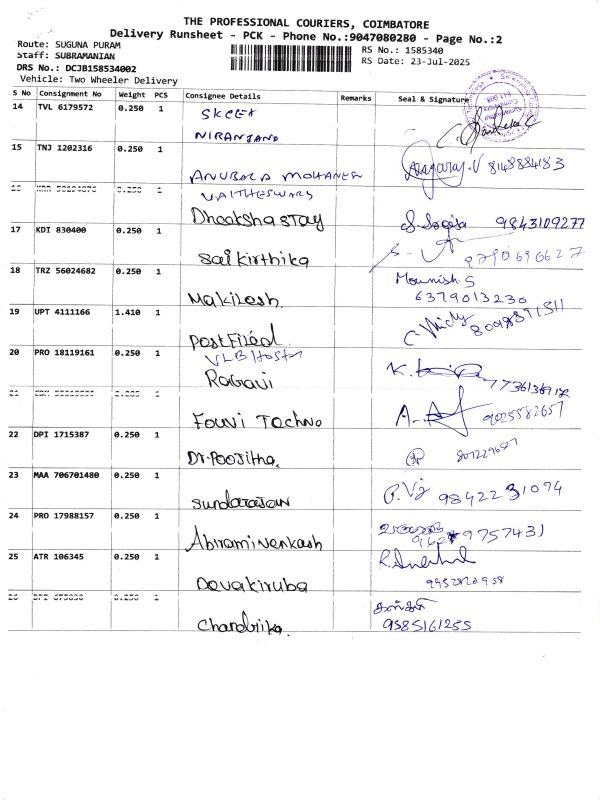 THE PROFESSIONAL COURIERS, COIMBATORE
Delivery Runsheet - PCK - Phone No.:9047080280 - Page No.:2
Route: SUGUNA PURAM
Staff: SUBRAMANIAN
DRS No.: DCJB158534002
Vehicle: Two Wheeler Delivery
RS No.: 1585340
RS Date: 23-Jul-2025
S No Consignment No Weight PCS Consignee Details Remarks Seal & Signature
14 TVL 6179572 0.250 1 SKCET
NIRANJANO
15 TNJ 1202316 0.250 1 ANUBALA MOHANEN Nagaraj.V 8148884183
16 0.250 1 VAITHESWARY
Dheekshastay 9843109277
17 KDI 830400 0.250 1 Saikirthika 9790696627
18 TRZ 56024682 0.250 1 Makilesh. Mounish S
6379013230
19 UPT 4111166 1.410 1 Postfired
VLB Hostr
20 PRO 18119161 0.250 1 Ragavi
21 1 Fouvi Techno 9025582657
22 DPI 1715387 0.250 1 Dr.Poojitha.
23 MAA 706701480 0.250 1 Sundarajan 9842231094
24 PRO 17988157 0.250 1 Abirami venkash
25 ATR 106345 0.250 1 Devakiruba
26 DPI 1 Chandrika. 9585161255